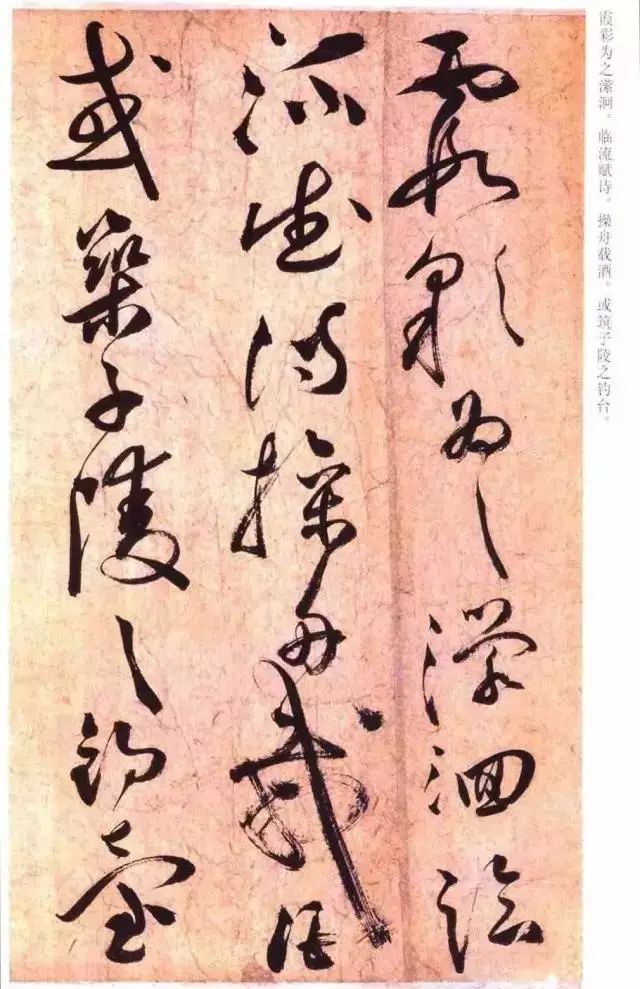 霞彩为之潆洄。临流赋诗。操舟载酒。或筑子陵之钓台。
霞彩為之濴洄臨
流賦詩操舟載酒
或築子陵之釣臺